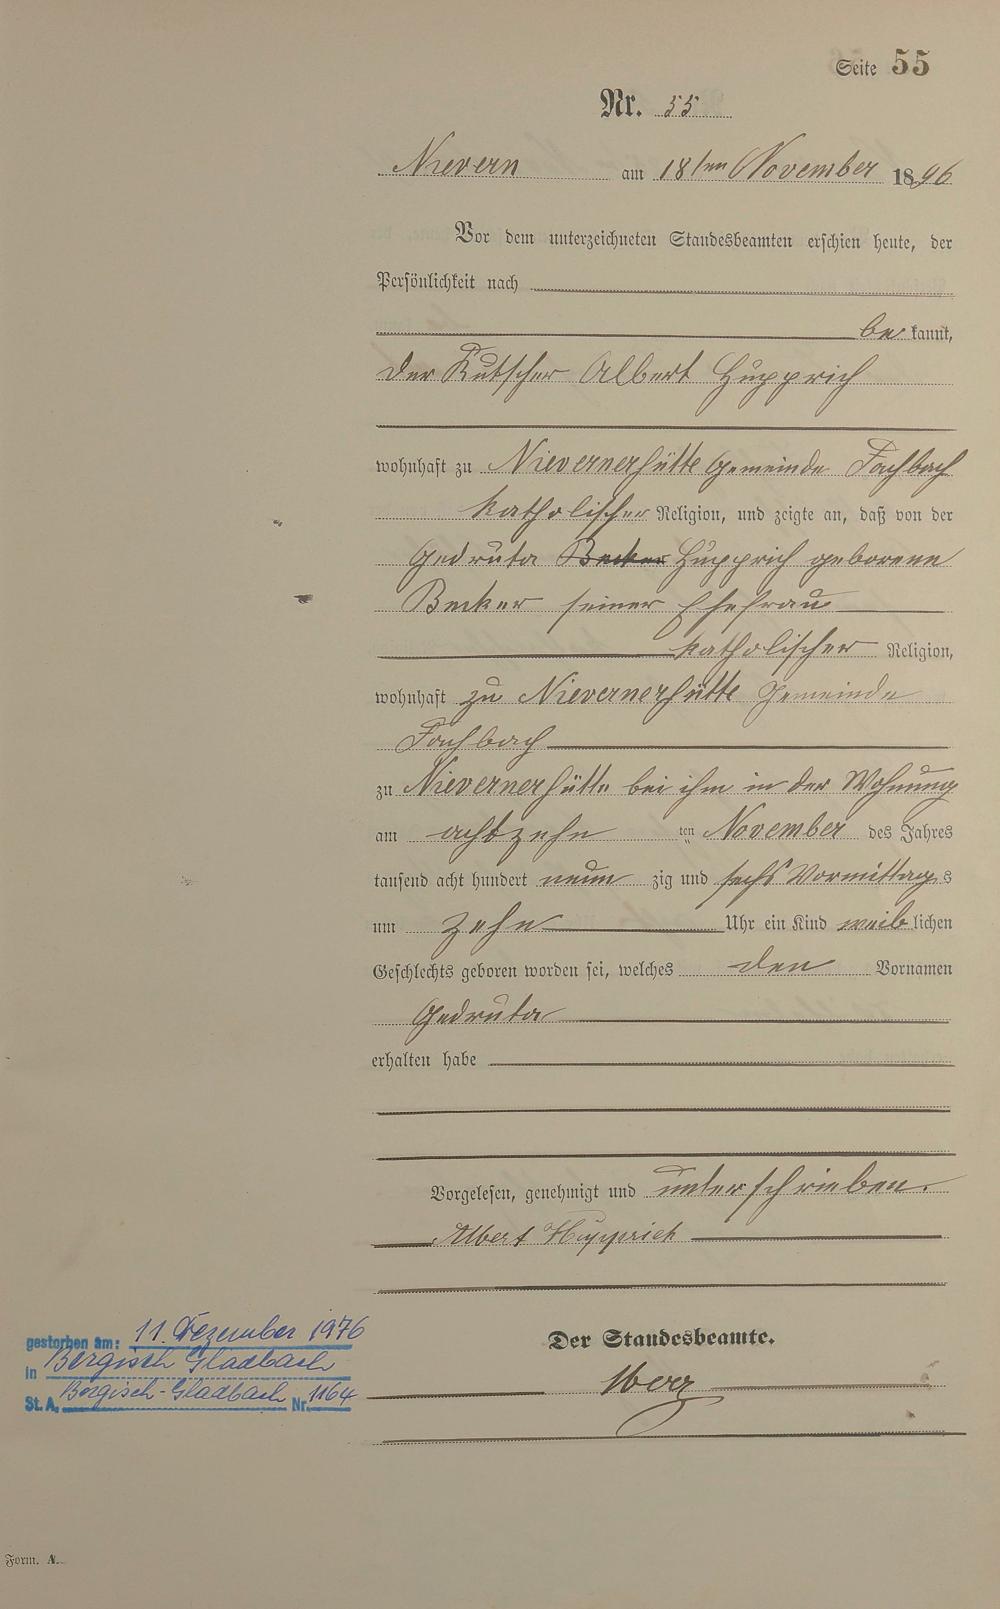 Seite 55
Nr. 55
Nievern am 18ten November 1896
Vor dem unterzeichneten Standesbeamten erschien heute, der
Persönlichkeit nach
be kannt,
der Kutscher Albert Hupprich
wohnhaft zu Nievernerhütte Gemeinde Fachbach
katholischer Religion, und zeigte an, daß von der
Gedruta Becker Hupprich geborene
Becker seiner Ehefrau
katholischer Religion,
wohnhaft zu Nievernerhütte Gemeinde
Fachbach
zu Nievernerhütte bei ihm in der Wohnung
am achtzehn ten November des Jahres
tausend acht hundert neun zig und sechs Vormittags
um zehn Uhr ein Kind weiblichen
Geschlechts geboren worden sei, welches den Vornamen
Gedruta
erhalten habe
Vorgelesen, genehmigt und unterschrieben.
Albert Hupprich
Der Standesbeamte.
gestorben am: 11. Dezember 1976
in Bergisch Gladbach
St. A. Bergisch-Gladbach Nr. 1164
Form. A.